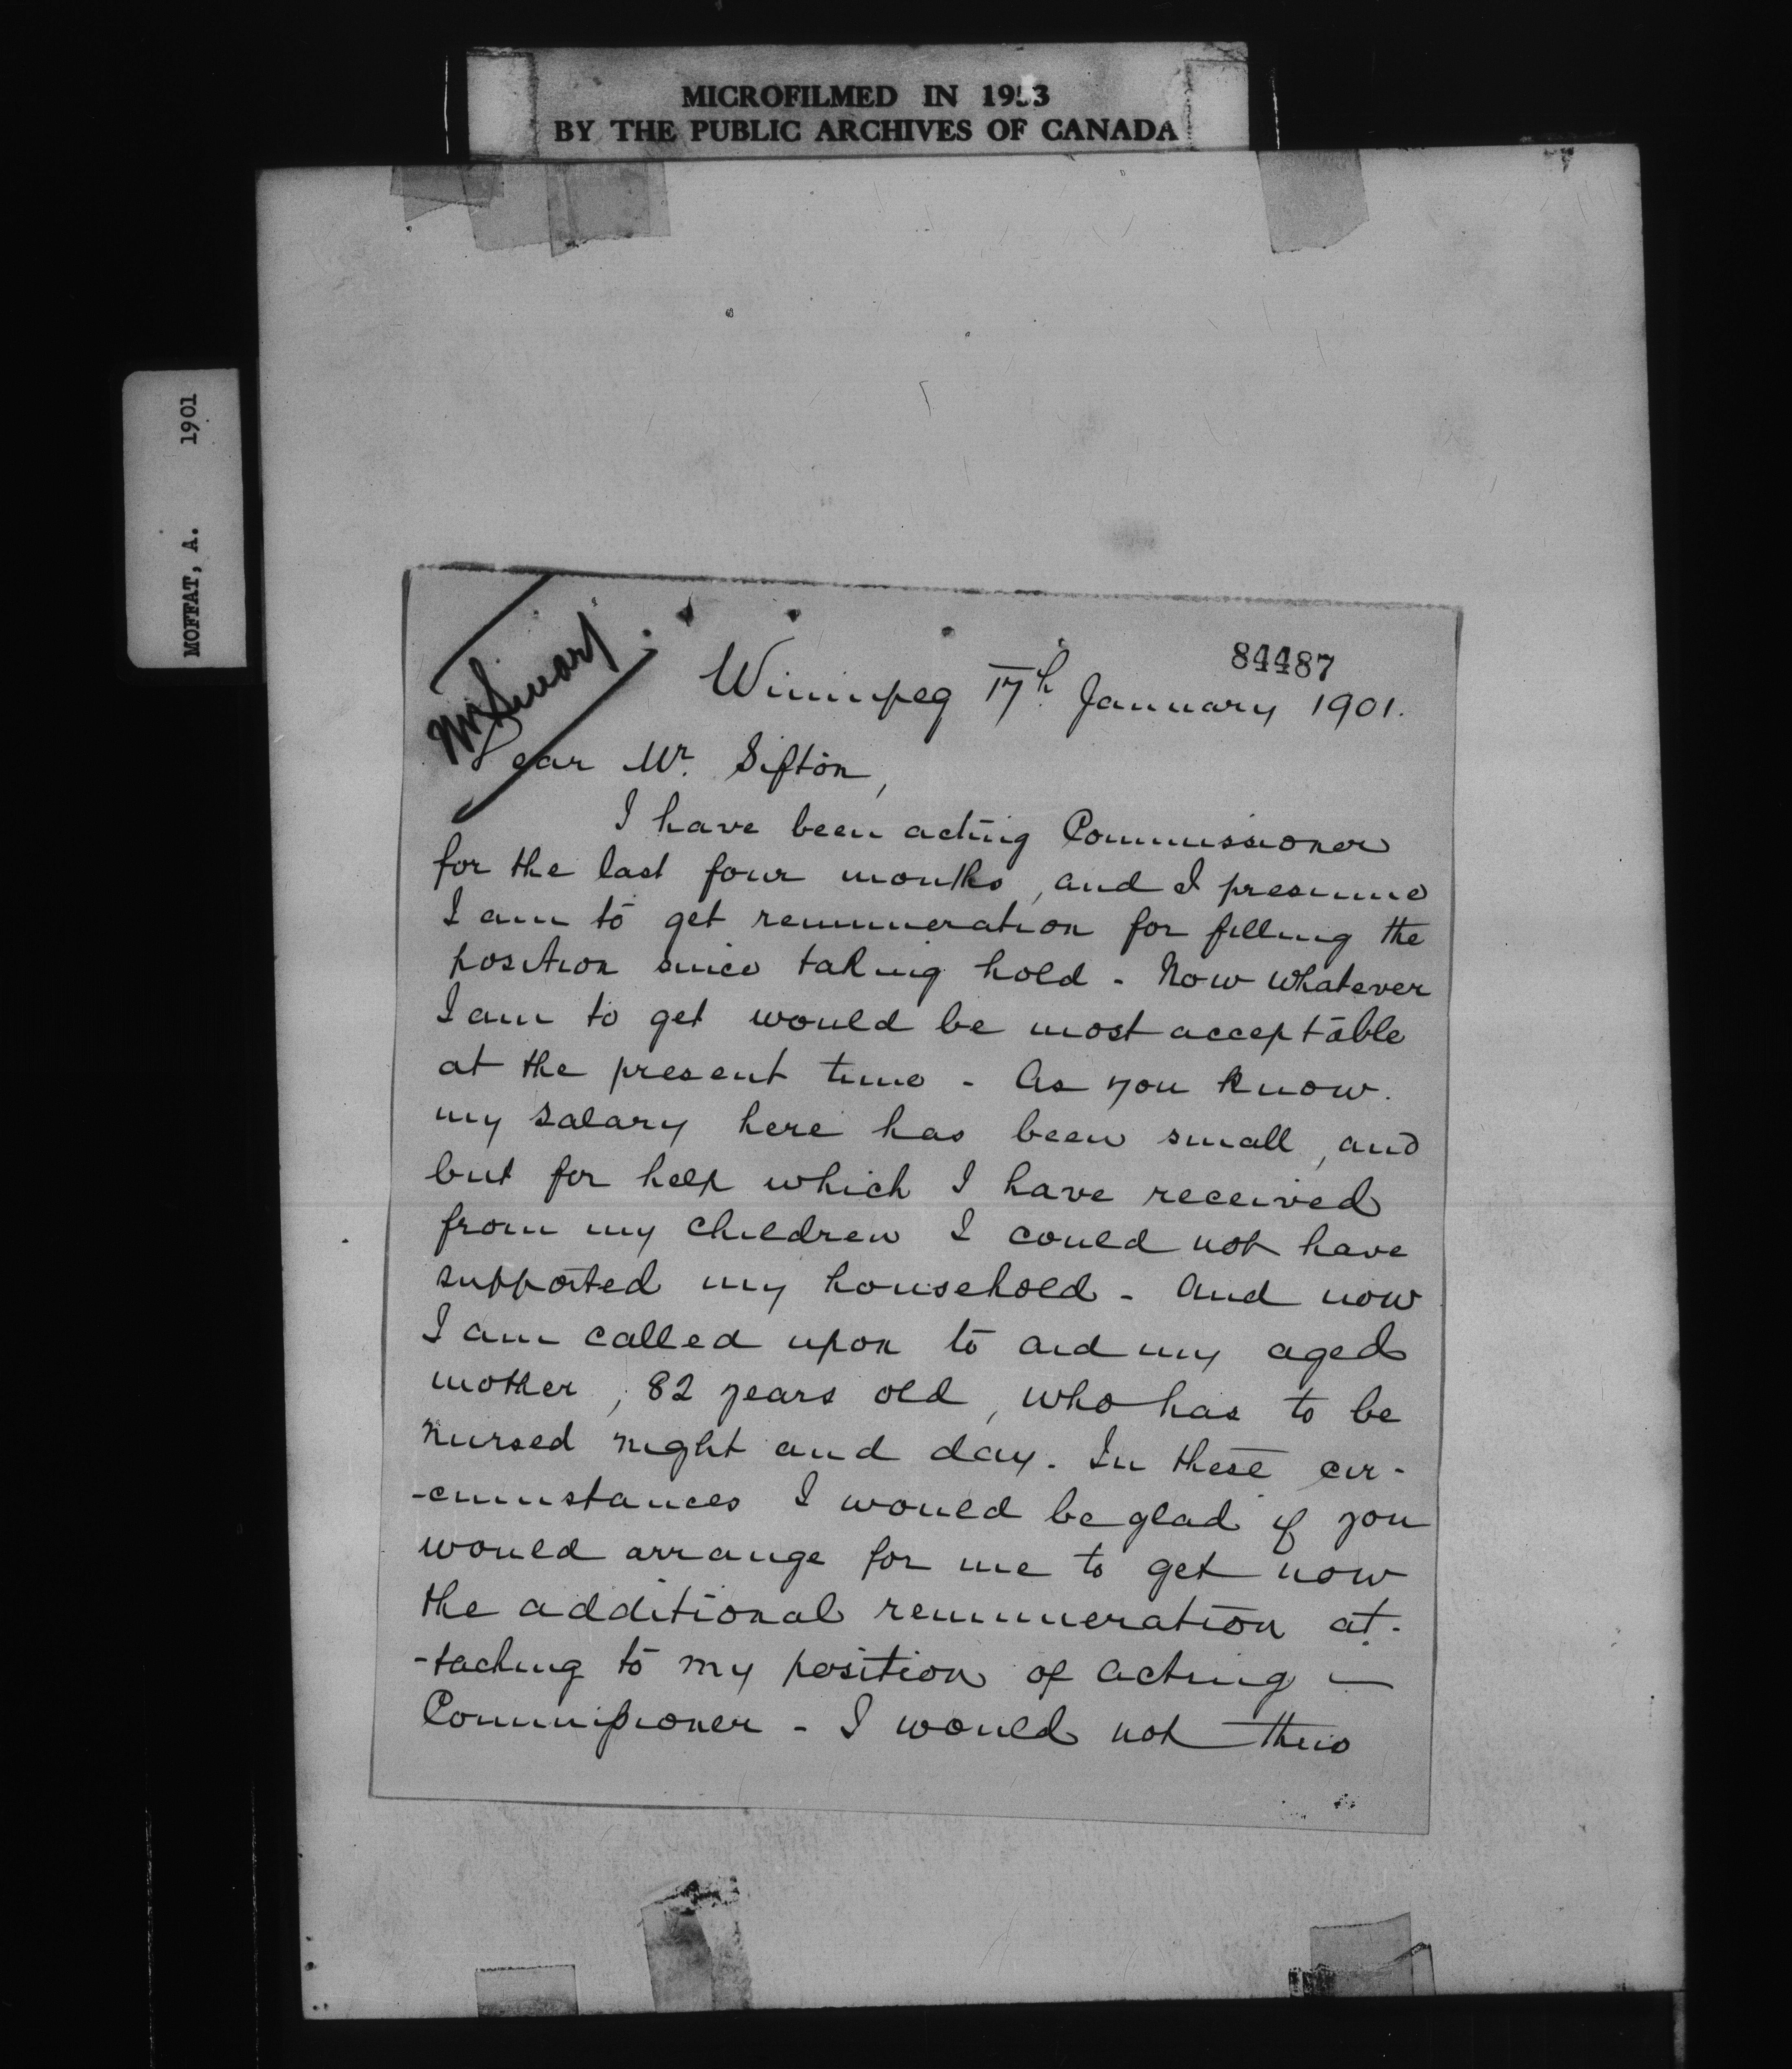 MICROFILMED IN 1953
BY THE PUBLIC ARCHIVES OF CANADA
MOFFAT, A. 1901
84487
Winnipeg 17th January 1901.
Dear Mr. Sifton,
I have been acting Commissioner
for the last four months, and I presume
I am to get remuneration for filling the
position since taking hold - Now whatever
I am to get would be most acceptable
at the present time - As you know.
my salary here has been small, and
but for help which I have received
from my children I could not have
supported my household - And now
I am called upon to aid my aged
mother, 82 years old, who has to be
nursed night and day. In these cir-
-cumstances I would be glad if you
would arrange for me to get now
the additional remuneration at-
-taching to my position of acting -
Commissioner - I would not thus